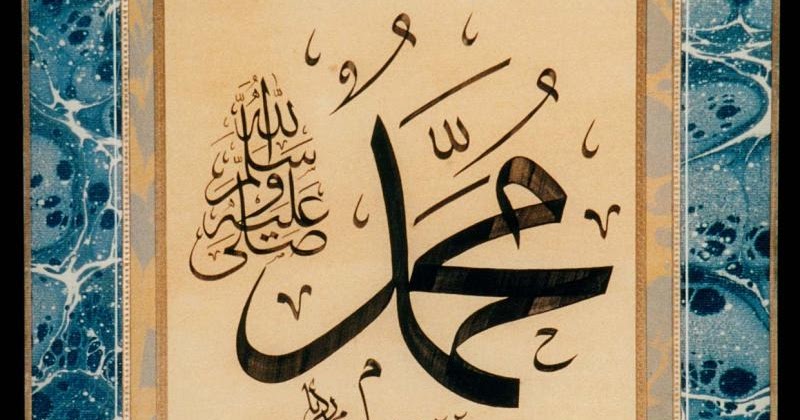 مُحَمَّدٌ
صلى الله عليه وسلم